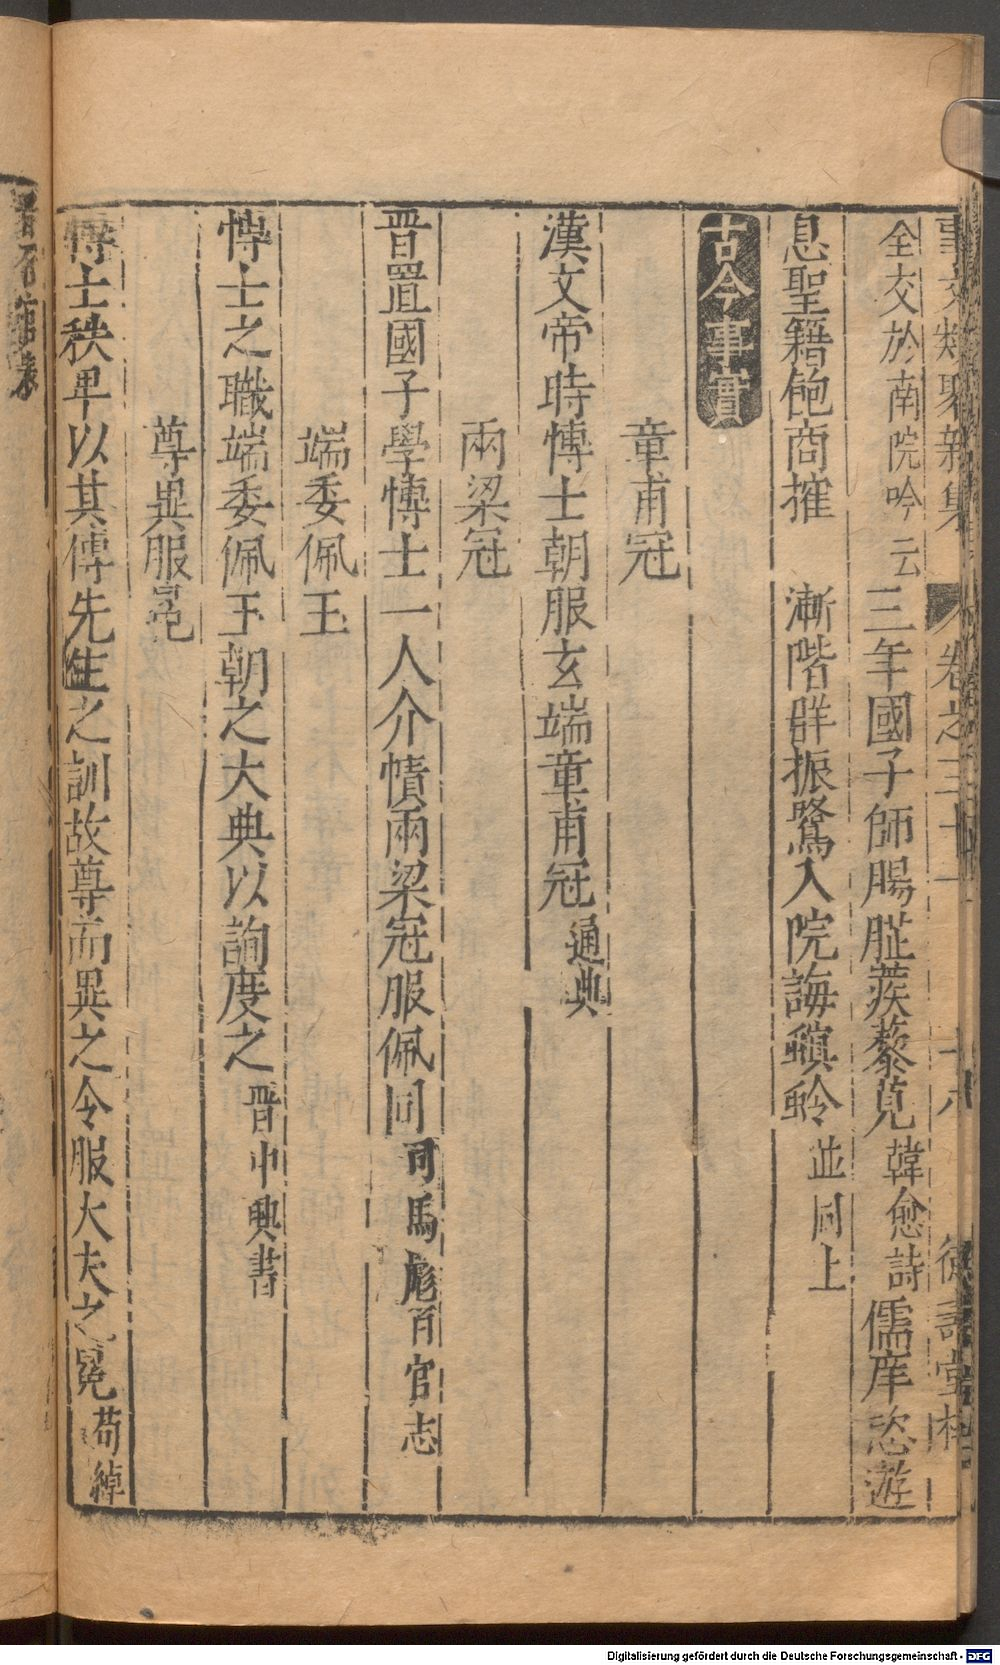 事文類聚新集 卷之三十一 十八 德壽堂梓
全交於南院吟云三年國子師腸肚蔟藜莧韓愈詩儒庠恣遊
息聖籍飽商搉 漸階群振鷺入院誨螟蛉並同上
古今事實
章甫冠
漢文帝時愽士朝服玄端章甫冠通典
兩梁冠
晋置國子學愽士一人介幘兩梁冠服佩同司馬彪百官志
端委佩玉
愽士之職端委佩玉朝之大典以詢度之晋中興書
尊異服冕
愽士秩卑以其傳先生之訓故尊而異之令服大夫之冕荀綽
Digitalisierung gefördert durch die Deutsche Forschungsgemeinschaft - DFG